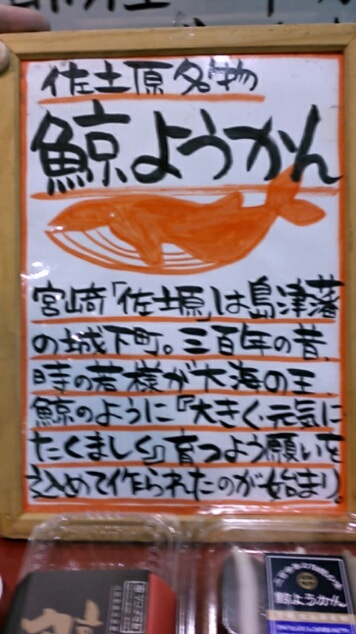 佐土原名物
鯨ようかん
宮崎「佐土原」は島津藩
の城下町。三百年の昔、
時の若様が大海の王、
鯨のように『大きく・元気に
たくましく』育つよう願いを
込めて作られたのが始まり。
鯨ようかん